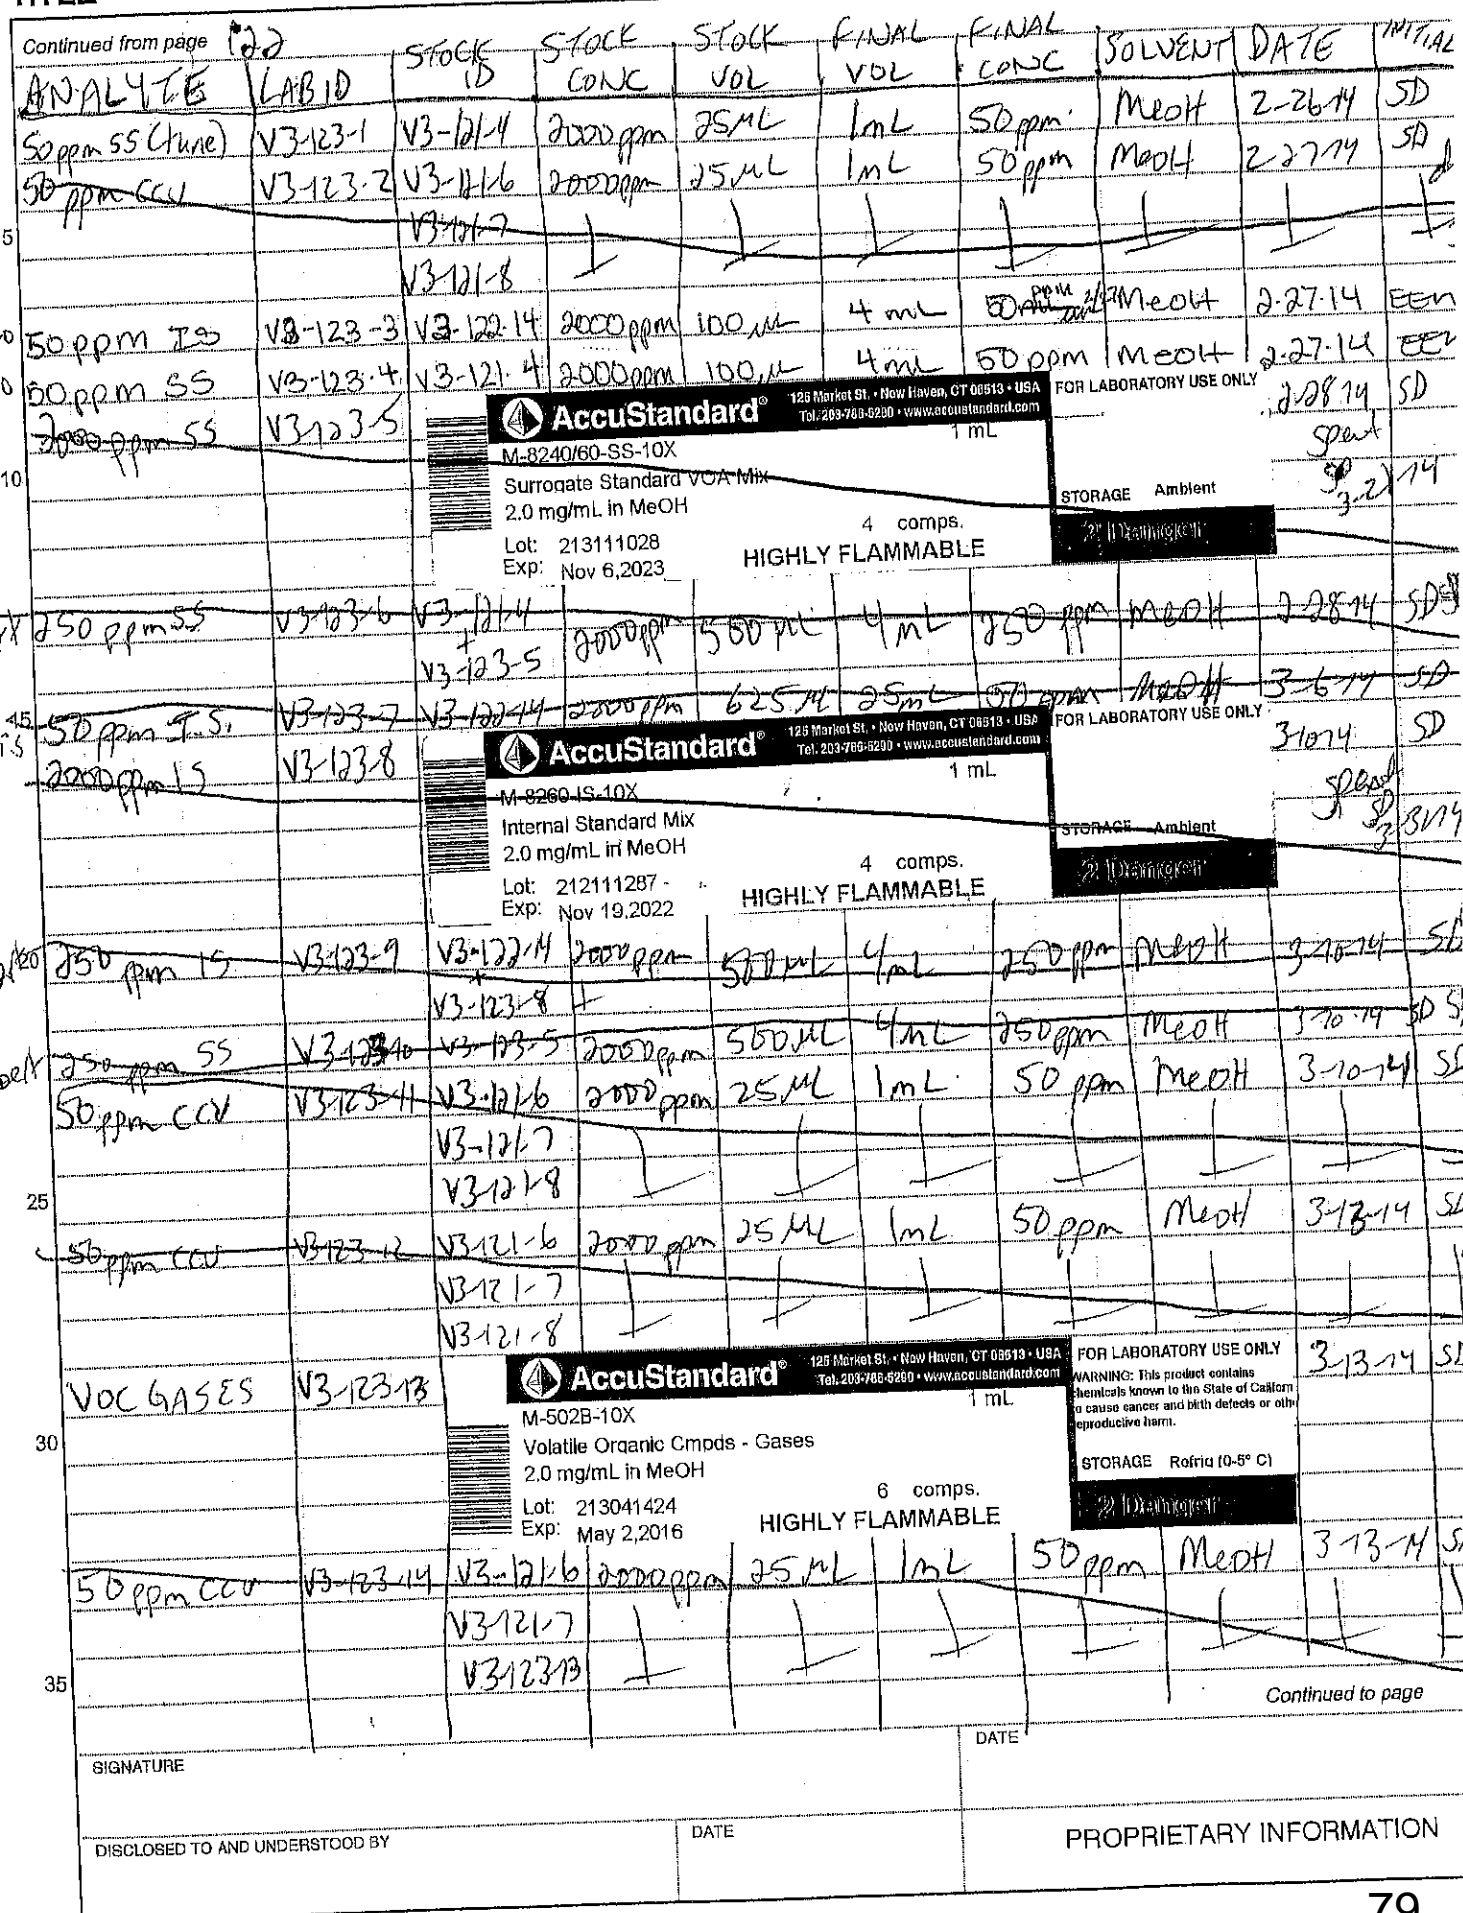 Continued from page 122
ANALYTE LAB ID STOCK ID STOCK CONC STOCK VOL FINAL VOL FINAL CONC SOLVENT DATE INITIAL
50 ppm SS (tune) V3-123-1 V3-121-4 2000 ppm 25 µL 1 mL 50 ppm MeOH 2-26-14 SD
50 ppm CCV V3-123-2 V3-121-6 2000 ppm 25 µL 1 mL 50 ppm MeOH 2-27-14 SD
5 V3-121-7
V3-121-8
50 ppm IS V3-123-3 V3-122-14 2000 ppm 100 µL 4 mL 50 ppm MeOH 2-27-14 EEH
50 ppm SS V3-123-4 V3-121-4 2000 ppm 100 µL 4 mL 50 ppm MeOH 2-27-14
2000 ppm SS V3-123-5 2-28-14 SD
AccuStandard® 125 Market St. • New Haven, CT 06513 • USA
Tel. 203-786-5290 • www.accustandard.com
FOR LABORATORY USE ONLY
1 mL
spent
SD
3-21-14
10
M-8240/60-SS-10X
Surrogate Standard VOA Mix
2.0 mg/mL in MeOH
STORAGE Ambient
4 comps.
2 Danger
Lot: 213111028
HIGHLY FLAMMABLE
Exp: Nov 6,2023
250 ppm SS V3-123-6 V3-121-4 + V3-123-5 2000 ppm 500 µL 4 mL 250 ppm MeOH 2-28-14 SD
50 ppm I.S. V3-123-7 V3-122-14 2000 ppm 625 µL 25 mL 50 ppm MeOH 3-6-14 SD
2000 ppm IS V3-123-8 3-10-14 SD
AccuStandard® 125 Market St. • New Haven, CT 06513 • USA
Tel. 203-786-5290 • www.accustandard.com
FOR LABORATORY USE ONLY
1 mL
spent
SD
M-8260-IS-10X
Internal Standard Mix
2.0 mg/mL in MeOH
STORAGE Ambient
4 comps.
2 Danger
Lot: 212111287
HIGHLY FLAMMABLE
Exp: Nov 19,2022
20 250 ppm IS V3-123-9 V3-122-14 + V3-123-8 2000 ppm 500 µL 4 mL 250 ppm MeOH 3-10-14
250 ppm SS V3-123-10 V3-123-5 2000 ppm 500 µL 4 mL 250 ppm MeOH 3-10-14 SD
50 ppm CCV V3-123-11 V3-121-6 2000 ppm 25 µL 1 mL 50 ppm MeOH 3-10-14
V3-121-7
25 V3-121-8
50 ppm CCV V3-123-12 V3-121-6 2000 ppm 25 µL 1 mL 50 ppm MeOH 3-12-14
V3-121-7
V3-121-8
VOC GASES V3-123-13 3-13-14
AccuStandard® 125 Market St. • New Haven, CT 06513 • USA
Tel. 203-786-5290 • www.accustandard.com
FOR LABORATORY USE ONLY
WARNING: This product contains
chemicals known to the State of Californ
o cause cancer and birth defects or oth
eproductive harm.
1 mL
30
M-502B-10X
Volatile Organic Cmpds - Gases
2.0 mg/mL in MeOH
STORAGE Refrig (0-5° C)
6 comps.
2 Danger
Lot: 213041424
HIGHLY FLAMMABLE
Exp: May 2,2016
50 ppm CCV V3-123-14 V3-121-6 2000 ppm 25 µL 1 mL 50 ppm MeOH 3-13-14
V3-121-7
35 V3-123-13
Continued to page
SIGNATURE DATE
DISCLOSED TO AND UNDERSTOOD BY DATE PROPRIETARY INFORMATION
79